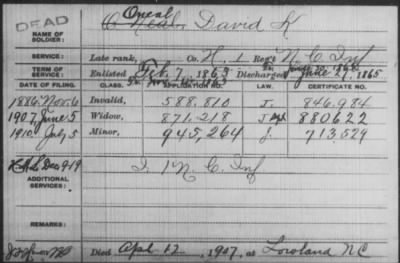 DEAD
NAME OF SOLDIER: Oneal David K
SERVICE: Late rank, Co. H, 1 Reg't N.C. Inf
TERM OF SERVICE: Enlisted Feb. 7, 1863 Discharged June 27, 1865
DATE OF FILING. CLASS. APPLICATION NO. LAW. CERTIFICATE NO.
1886 Nov. 6 Invalid, 588.810 J. 846.984
1907, June 5 Widow, 871.218 880622
1910, July 5 Minor, 945,264 J. 713,529
ADDITIONAL SERVICES: I. 1 N.C. Inf
REMARKS:
Died Apl. 12, 1907, at Lowland NC